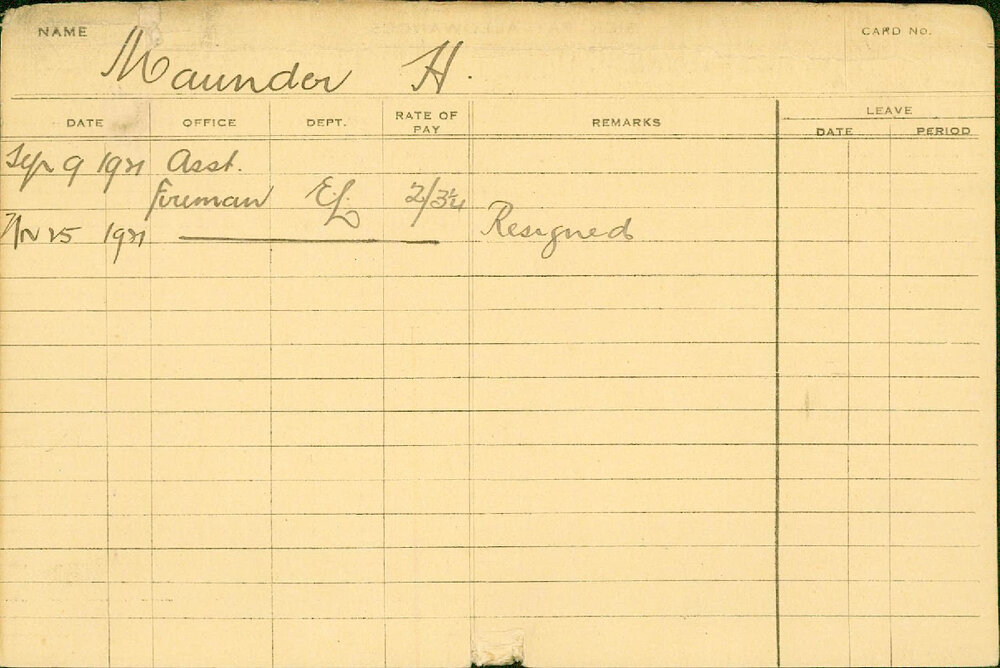 NAME Maunder H. CARD NO.
DATE OFFICE DEPT. RATE OF PAY REMARKS LEAVE DATE PERIOD
Sep 9 1921 Asst.
Foreman EL 2/3¼
Nov 25 1921 Resigned